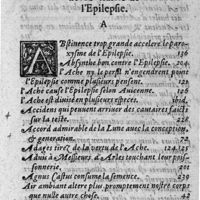 l'Epilepsie.
A
ABstinence trop grande accelere le paro-
xysme de l'Epilepsie. 126
Absynthe bon contre l'Epilepsie. 104.
l'Ache ny le persil n'engendrent point
l'Epilepsie comme plusieurs pensent. 125
l'Ache cause l'Epilepsie selon Auicenne. 100
l'Ache est diuisé en plusieurs especes. ibid.
Accidens qui peuuent arriuer des cauteres faicts
sur la teste. 228
Accord admirable de la Lune auec la conception,
& generation. 72
Adages tirez de la vertu de l'Ache. 124.125
Aduis à Messieurs d'Arles touchant leur poiss-
onnerie. 201
Agnus Castus consume la semence. 239
Air ambiant altere plus promptement nostre corps
que nulle autre chose. 42